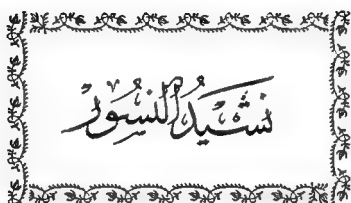 نَشِيدُ النُّسُور